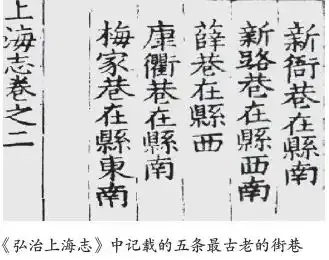 新衙巷在縣南
新路巷在縣西南
薛巷在縣西
康衢巷在縣南
梅家巷在縣東南
上海志卷之二
《弘治上海志》中记载的五条最古老的街巷